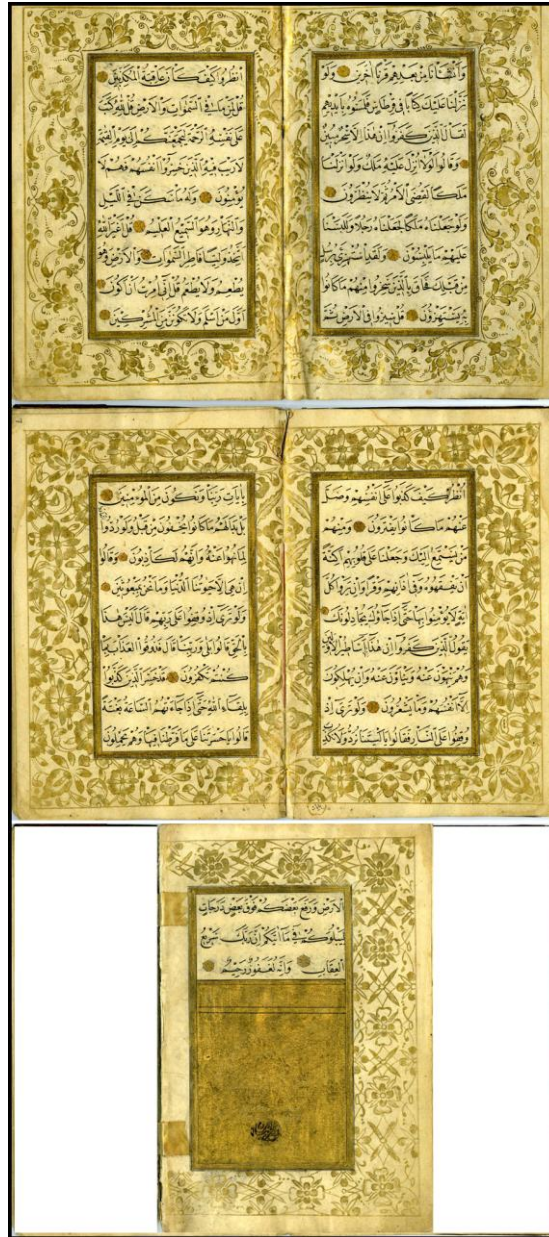 وَاَنْشَاْنَا مِنْ بَعْدِهِمْ قَرْنًا اٰخَرِينَ وَلَوْ
نَزَّلْنَا عَلَيْكَ كِتَابًا فِي قِرْطَاسٍ فَلَمَسُوهُ بِاَيْدِيهِمْ
لَقَالَ الَّذِينَ كَفَرُوا اِنْ هٰذَا اِلَّا سِحْرٌ مُبِينٌ
وَقَالُوا لَوْلَا اُنْزِلَ عَلَيْهِ مَلَكٌ وَلَوْ اَنْزَلْنَا
مَلَكًا لَقُضِيَ الْاَمْرُ ثُمَّ لَا يُنْظَرُونَ
وَلَوْ جَعَلْنَاهُ مَلَكًا لَجَعَلْنَاهُ رَجُلًا وَلَلَبَسْنَا
عَلَيْهِمْ مَا يَلْبِسُونَ وَلَقَدِ اسْتُهْزِئَ بِرُسُلٍ
مِنْ قَبْلِكَ فَحَاقَ بِالَّذِينَ سَخِرُوا مِنْهُمْ مَا كَانُوا
بِهِ يَسْتَهْزِؤُنَ قُلْ سِيرُوا فِي الْاَرْضِ ثُمَّ
انْظُرُوا كَيْفَ كَانَ عَاقِبَةُ الْمُكَذِّبِينَ
قُلْ لِمَنْ مَا فِي السَّمٰوَاتِ وَالْاَرْضِ قُلْ لِلّٰهِ كَتَبَ
عَلٰى نَفْسِهِ الرَّحْمَةَ لَيَجْمَعَنَّكُمْ اِلٰى يَوْمِ الْقِيٰمَةِ
لَا رَيْبَ فِيهِ اَلَّذِينَ خَسِرُوا اَنْفُسَهُمْ فَهُمْ لَا
يُؤْمِنُونَ وَلَهُ مَا سَكَنَ فِي اللَّيْلِ
وَالنَّهَارِ وَهُوَ السَّمِيعُ الْعَلِيمُ قُلْ اَغَيْرَ اللّٰهِ
اَتَّخِذُ وَلِيًّا فَاطِرِ السَّمٰوَاتِ وَالْاَرْضِ وَهُوَ
يُطْعِمُ وَلَا يُطْعَمُ قُلْ اِنِّي اُمِرْتُ اَنْ اَكُونَ
اَوَّلَ مَنْ اَسْلَمَ وَلَا تَكُونَنَّ مِنَ الْمُشْرِكِينَ
اُنْظُرْ كَيْفَ كَذَبُوا عَلٰى اَنْفُسِهِمْ وَضَلَّ
عَنْهُمْ مَا كَانُوا يَفْتَرُونَ وَمِنْهُمْ
مَنْ يَسْتَمِعُ اِلَيْكَ وَجَعَلْنَا عَلٰى قُلُوبِهِمْ اَكِنَّةً
اَنْ يَفْقَهُوهُ وَفِي اٰذَانِهِمْ وَقْرًا وَاِنْ يَرَوْا كُلَّ
اٰيَةٍ لَا يُؤْمِنُوا بِهَا حَتّٰى اِذَا جَاؤُكَ يُجَادِلُونَكَ
يَقُولُ الَّذِينَ كَفَرُوا اِنْ هٰذَا اِلَّا اَسَاطِيرُ الْاَوَّلِينَ
وَهُمْ يَنْهَوْنَ عَنْهُ وَيَنْاَوْنَ عَنْهُ وَاِنْ يُهْلِكُونَ
اِلَّا اَنْفُسَهُمْ وَمَا يَشْعُرُونَ وَلَوْ تَرٰى اِذْ
وُقِفُوا عَلَى النَّارِ فَقَالُوا يَا لَيْتَنَا نُرَدُّ وَلَا نُكَذِّبَ
بِاٰيَاتِ رَبِّنَا وَنَكُونَ مِنَ الْمُؤْمِنِينَ
بَلْ بَدَا لَهُمْ مَا كَانُوا يُخْفُونَ مِنْ قَبْلُ وَلَوْ رُدُّوا
لِمَا نُهُوا عَنْهُ وَاِنَّهُمْ لَكَاذِبُونَ وَقَالُوا
اِنْ هِيَ اِلَّا حَيَاتُنَا الدُّنْيَا وَمَا نَحْنُ بِمَبْعُوثِينَ
وَلَوْ تَرٰى اِذْ وُقِفُوا عَلٰى رَبِّهِمْ قَالَ اَلَيْسَ هٰذَا
بِالْحَقِّ قَالُوا بَلٰى وَرَبِّنَا قَالَ فَذُوقُوا الْعَذَابَ بِمَا
كُنْتُمْ تَكْفُرُونَ قَدْ خَسِرَ الَّذِينَ كَذَّبُوا
بِلِقَاءِ اللّٰهِ حَتّٰى اِذَا جَاءَتْهُمُ السَّاعَةُ بَغْتَةً
قَالُوا يَا حَسْرَتَنَا عَلٰى مَا فَرَّطْنَا فِيهَا وَهُمْ يَحْمِلُونَ
الْاَرْضِ وَرَفَعَ بَعْضَكُمْ فَوْقَ بَعْضٍ دَرَجَاتٍ
لِيَبْلُوَكُمْ فِي مَا اٰتٰيكُمْ اِنَّ رَبَّكَ سَرِيعُ
الْعِقَابِ وَاِنَّهُ لَغَفُورٌ رَحِيمٌ